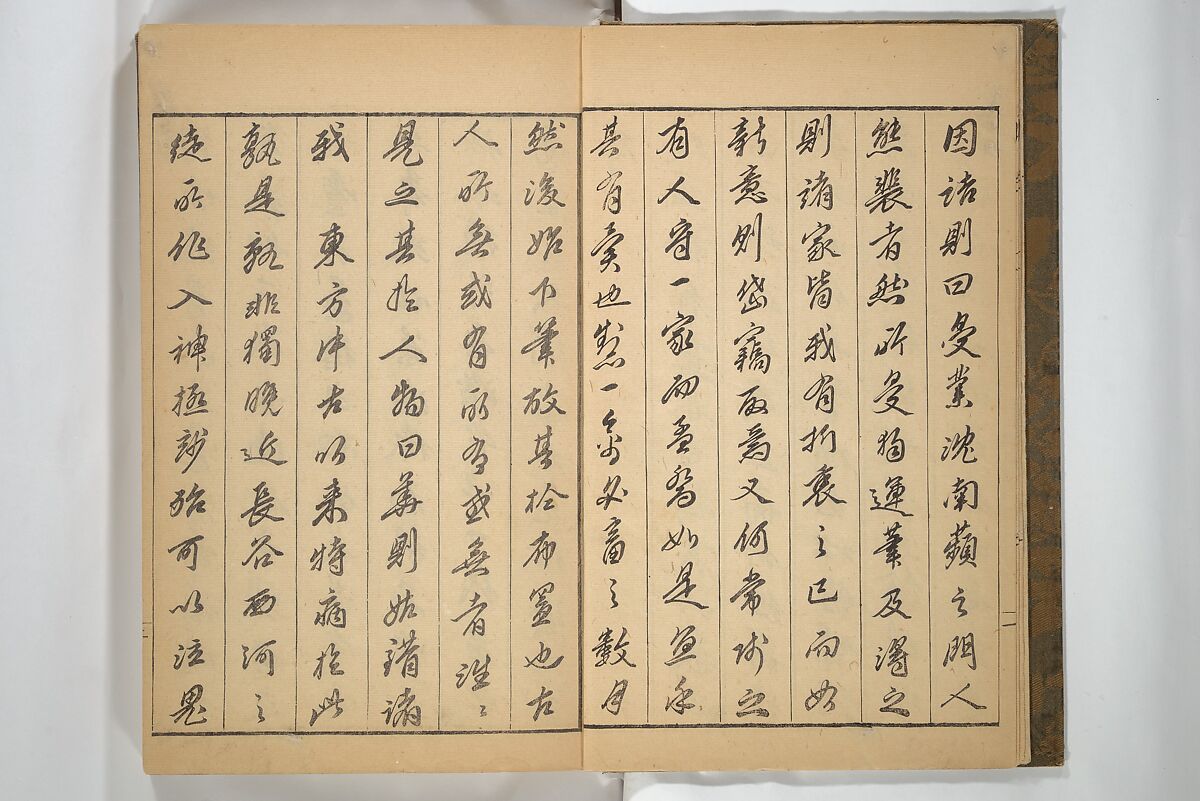 因詰則曰受業沈南蘋之門人
熊裴者然所受独運筆及之
則諸家皆我有折衷之已而如
新意則岱竊取焉又何常師之
有人守一家而孟晉如是乎
其有也製一禽必畜之數月
然後始下筆放其於布置也古
人所無或有所有或無者往々
見之其於人物曰華則姑錯諸
我 東方中古以来特病於此
孰是孰非獨晩近長谷西河之
徒所作入神極妙殆可以泣鬼